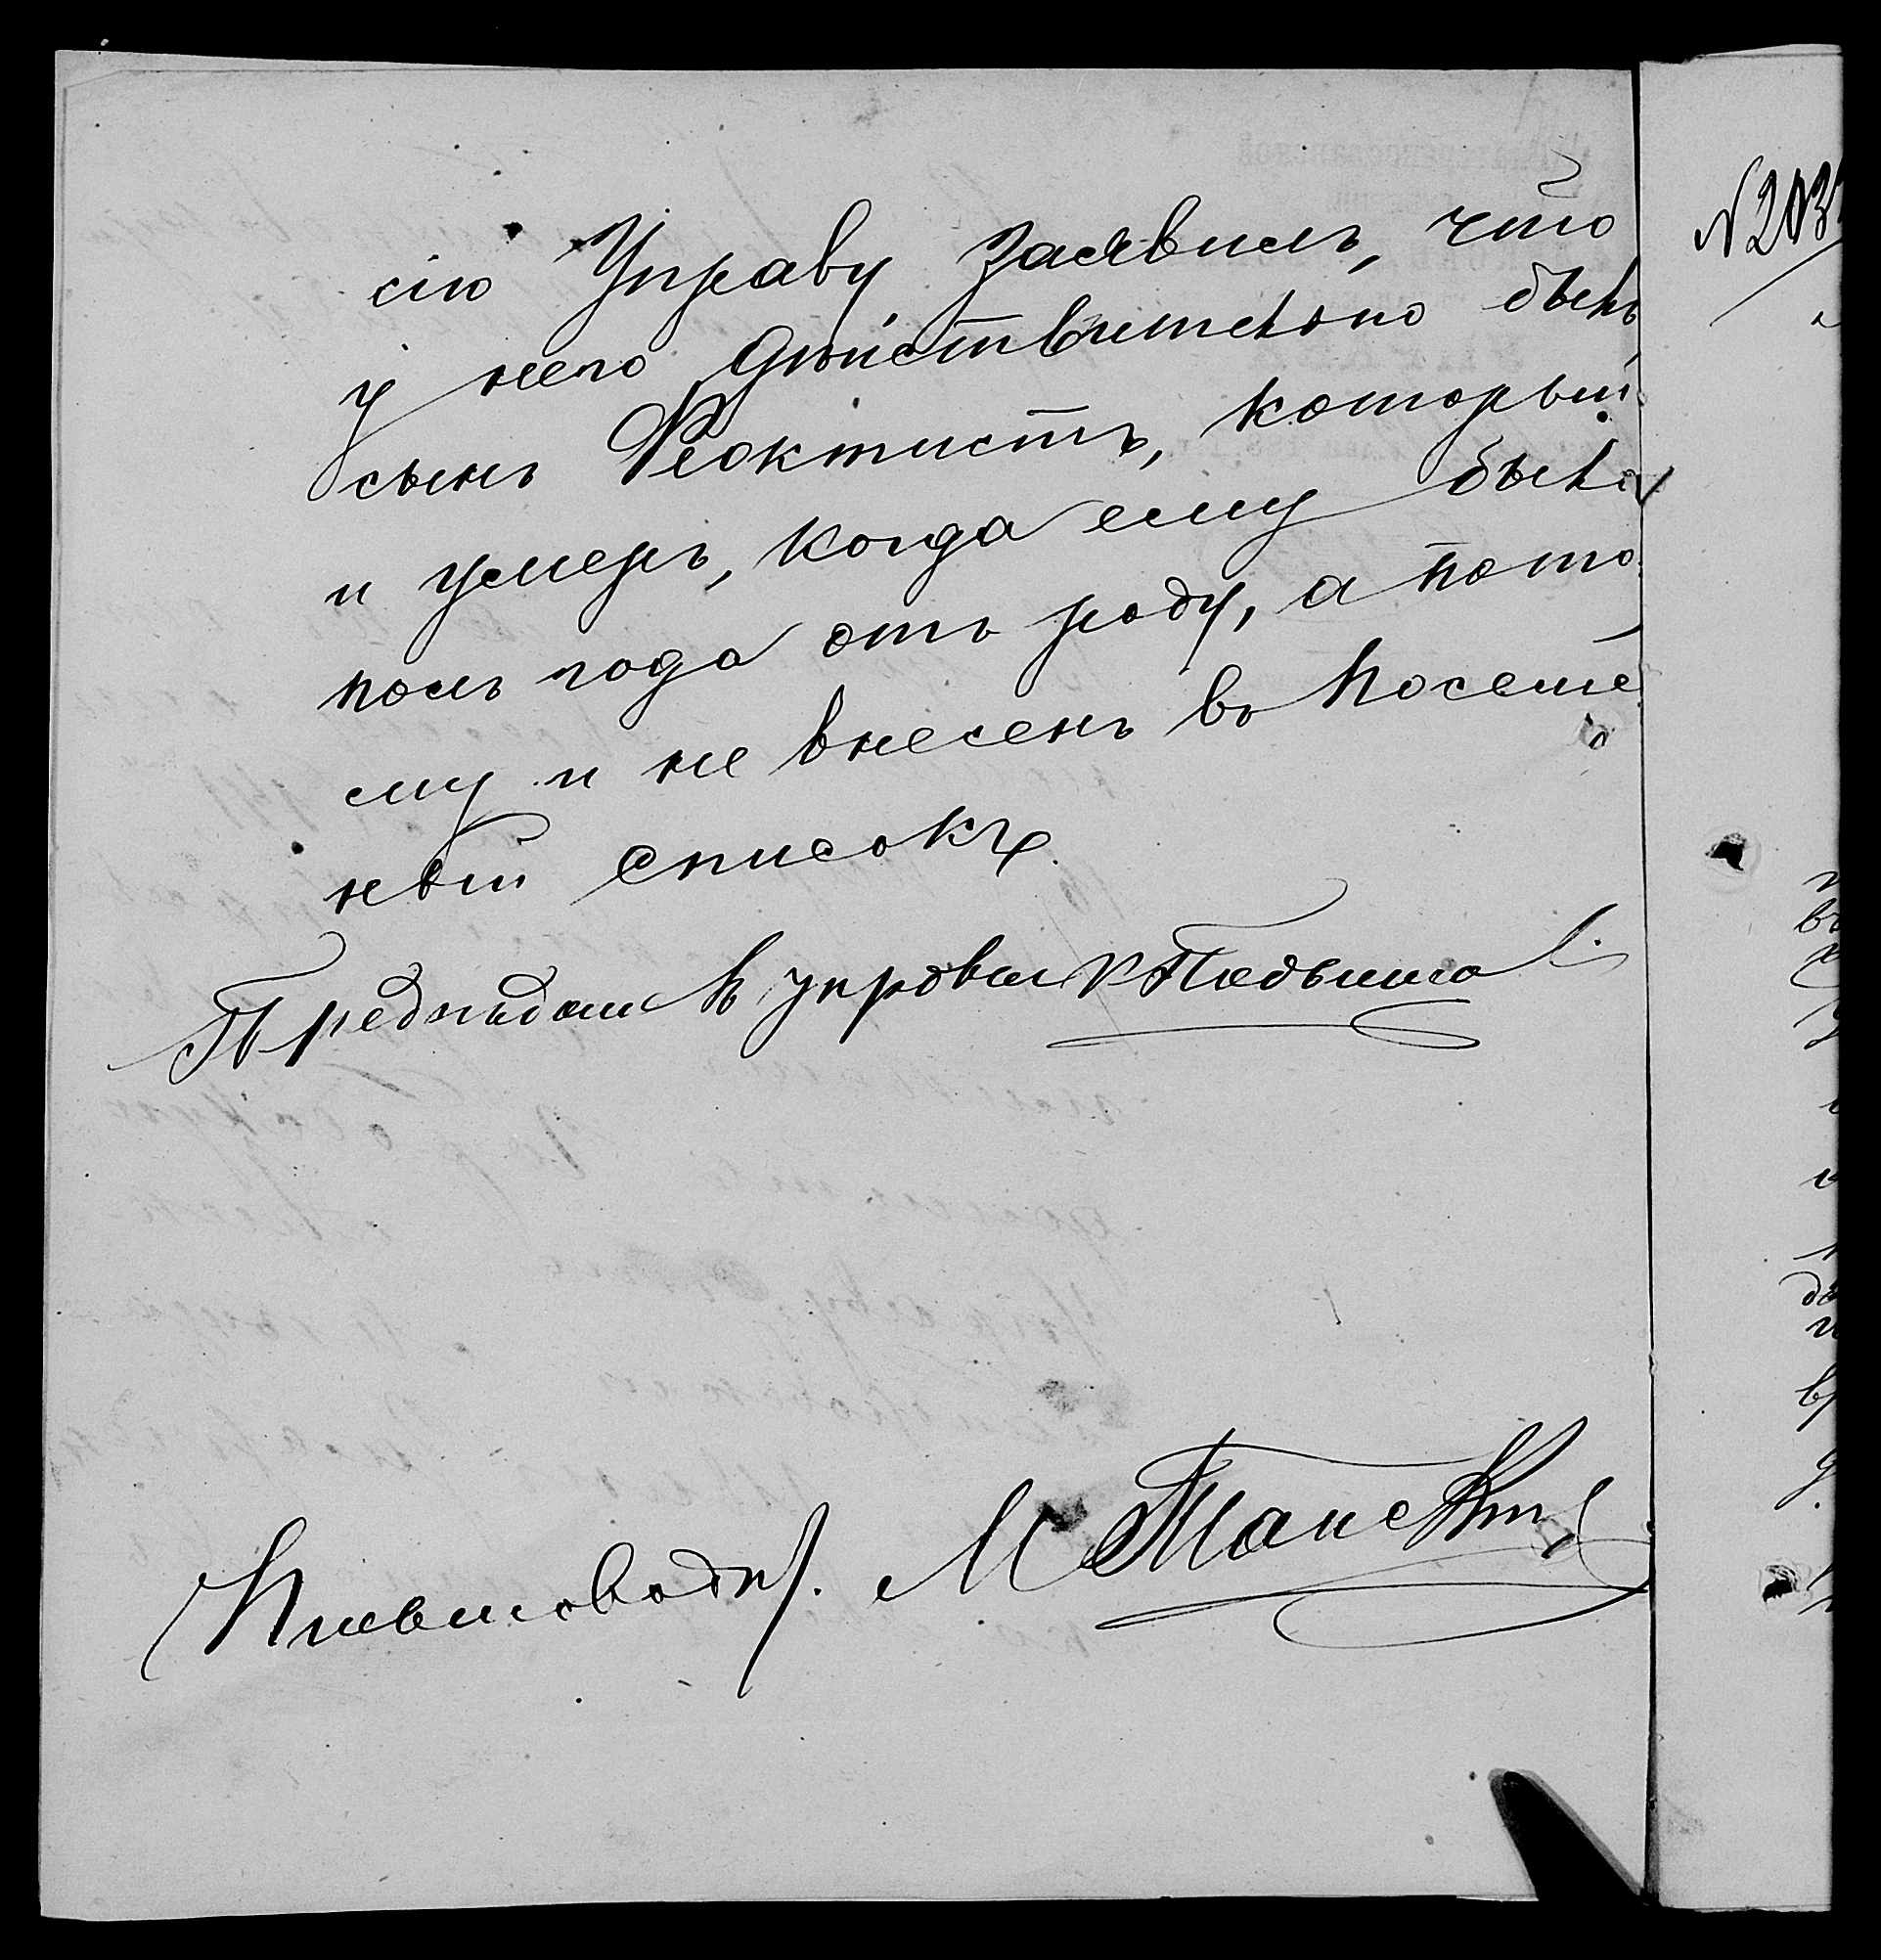 сію Управу заявилъ, что
у него дѣйствительно былъ
сынъ Ѳеоктистъ, который
и умеръ, когда ему было
полъ года отъ роду, а пото
му и не внесенъ въ посемей
ный списокъ.
Предсѣдатель управы
Письмоводит.
№ 203